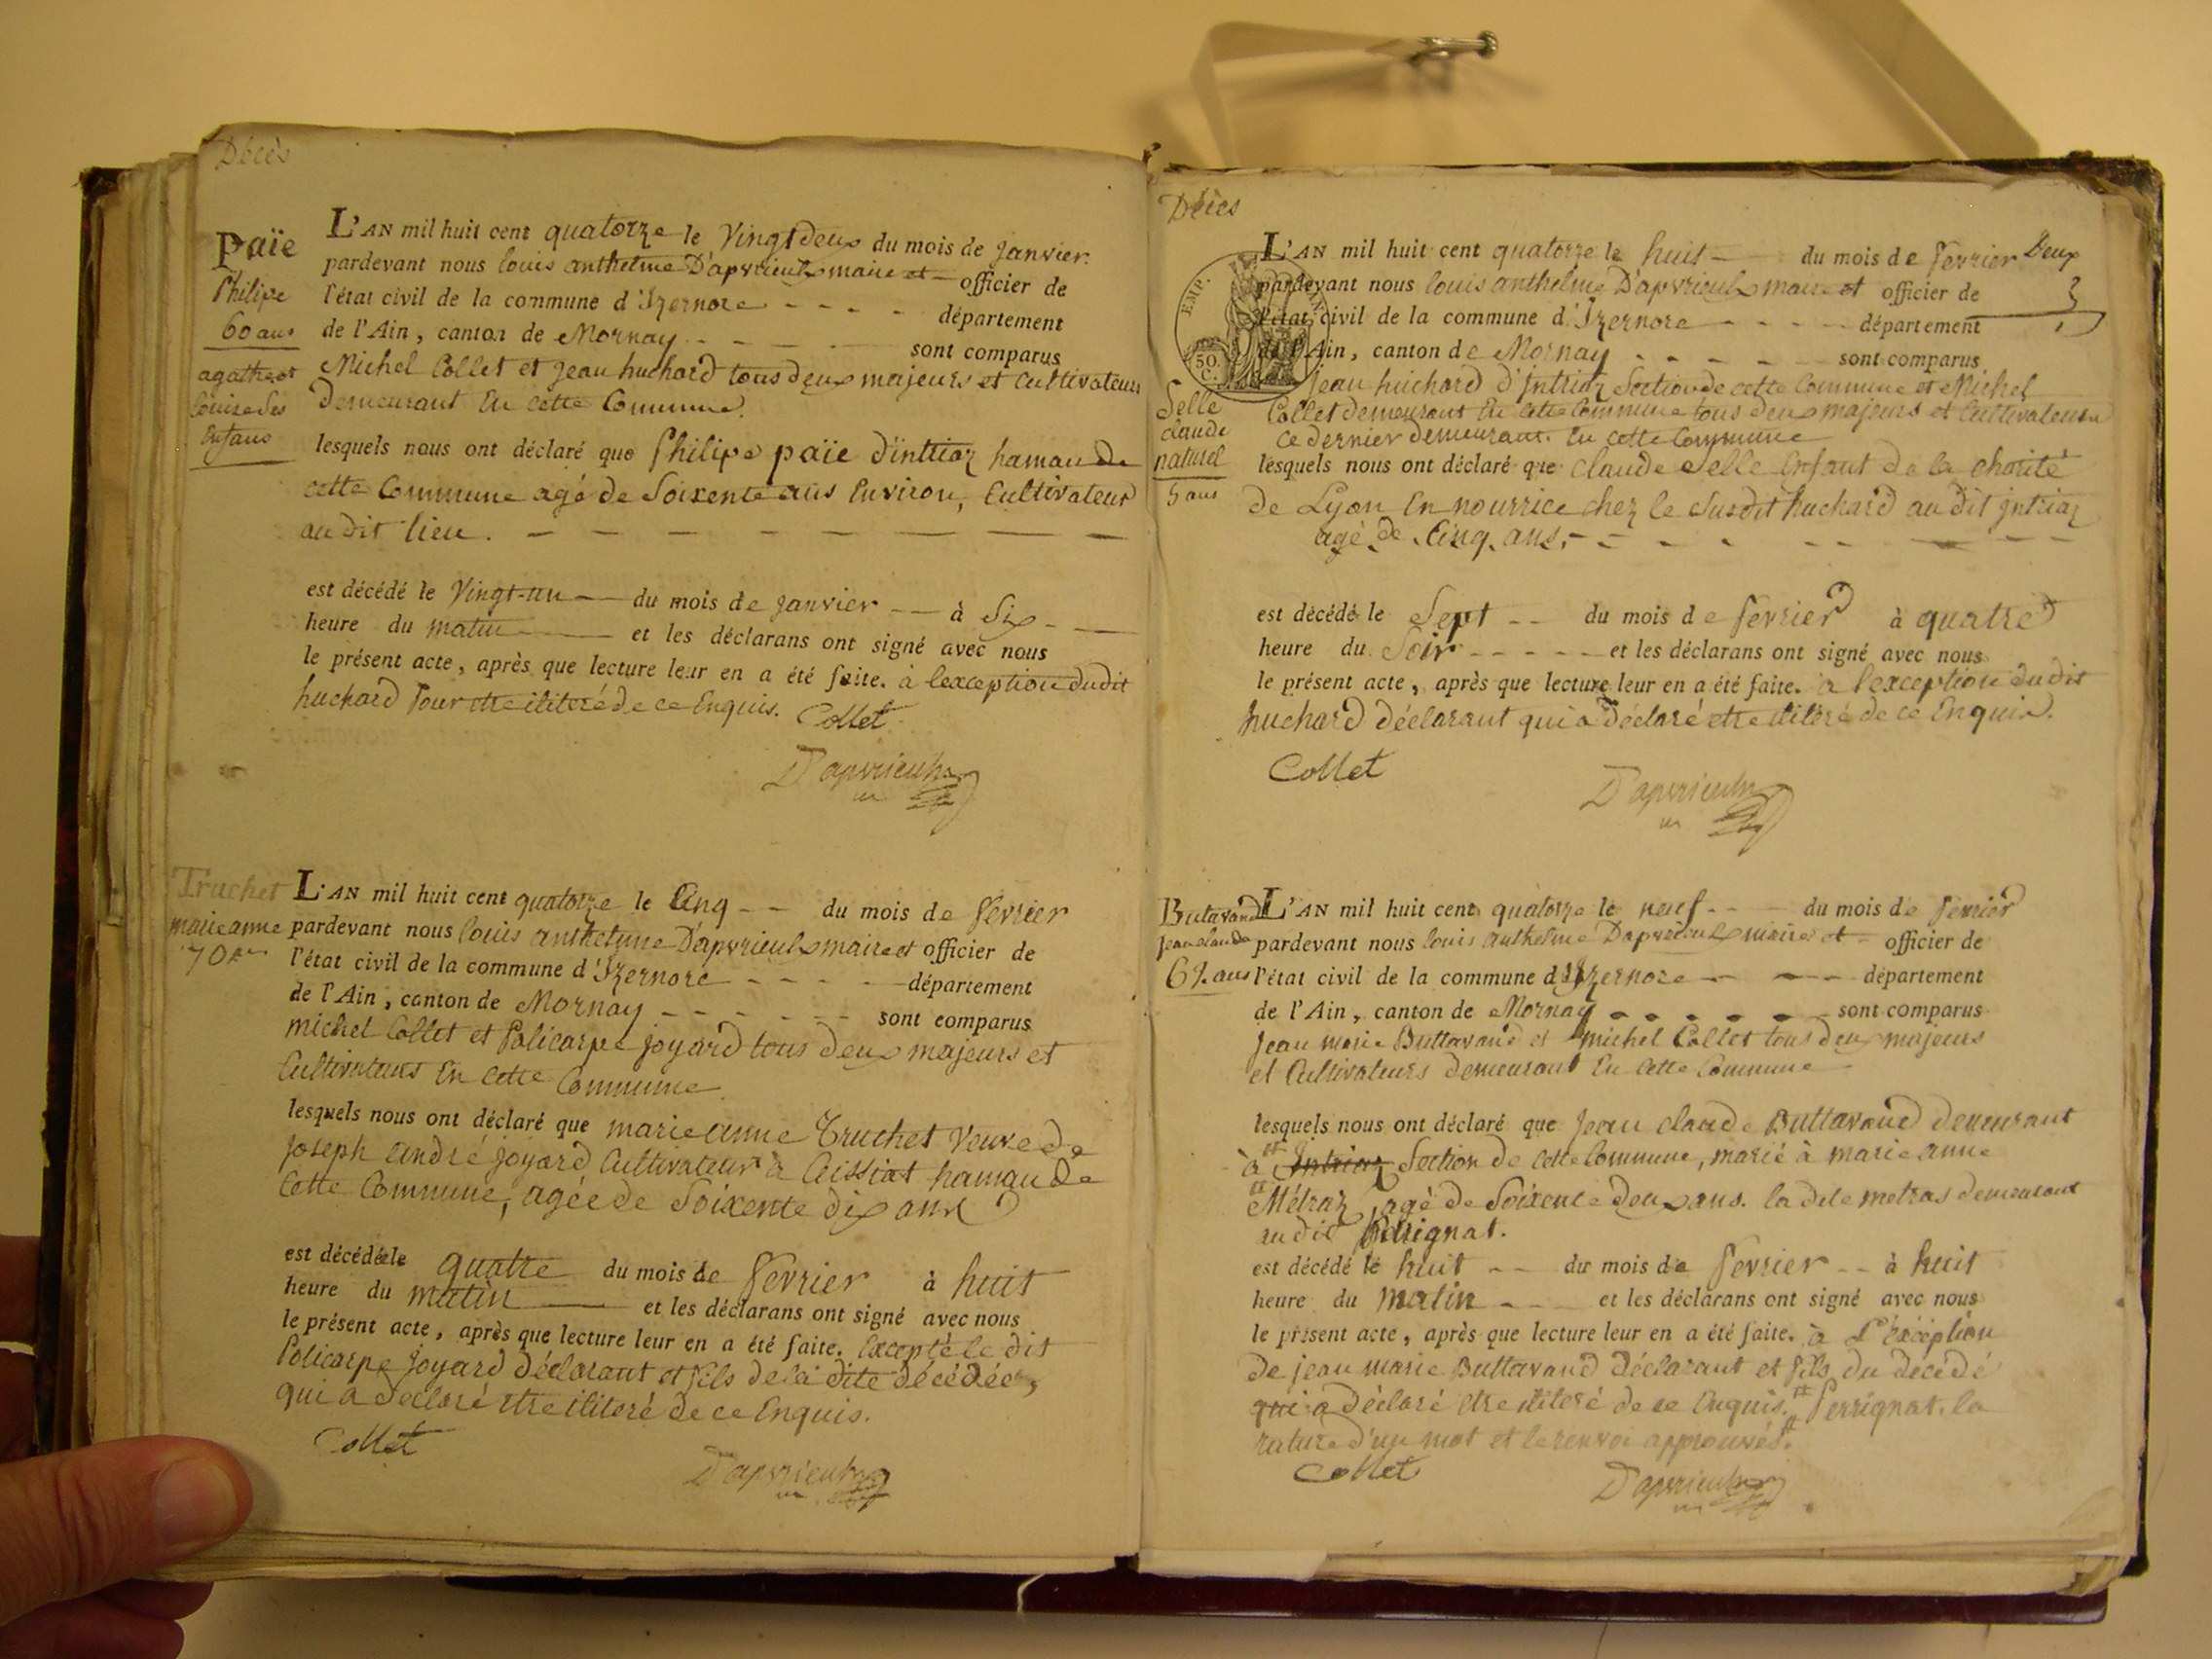 Décès
Païe
Philipe
60 ans
agathe et
Louise Ses
Enfans
L'AN mil huit cent quatorze le Vingt deux du mois de janvier
pardevant nous louis anthelme D'apvrieulx maire et officier de
l'état civil de la commune d'Izernore département
de l'Ain, canton de Mornay sont comparus
Michel Collet et jean huchard tous deux majeurs et cultivateurs
demeurant En cette Commune.
lesquels nous ont déclaré que Philipe païe d'intriaz hamau de
cette Commune agé de Soixente ans Environ, Cultivateur
au dit lieu.
est décédé le Vingt-un du mois de janvier à Six
heure du matin et les déclarans ont signé avec nous
le présent acte, après que lecture leur en a été faite. à lexception dudit
huchard Pour etre iliteré de ce Enquis. Collet
D'apvrieulx
Truchet
marie anne
70 ans
L'AN mil huit cent quatorze le Cinq du mois de fevrier
pardevant nous louis anthelme D'apvrieulx maire et officier de
l'état civil de la commune d'Izernore département
de l'Ain, canton de Mornay sont comparus
michel Collet et Policarpe joyard tous deux majeurs et
Cultivateurs En cette Commune
lesquels nous ont déclaré que marie anne Truchet Veuve de
joseph andré joyard Cultivateur à Ceissiat hamau de
cette Commune, agée de Soixente dix ans
est décédée le quatre du mois de fevrier à huit
heure du matin et les déclarans ont signé avec nous
le présent acte, après que lecture leur en a été faite. Excepté le dit
Policarpe joyard déclarant et fils de la dite décédée,
qui a déclaré etre iliteré de ce Enquis.
Collet
D'apvrieulx
Décès
EMP.
50
C.
Selle
claude
naturel
5 ans
L'AN mil huit cent quatorze le huit du mois de fevrier Deux
pardevant nous louis anthelme D'apvrieulx maire et officier de
l'état civil de la commune d'Izernore département
de l'Ain, canton de Mornay sont comparus
jean huchard d'Intriaz Section de cette Commune et Michel
Collet demeurant En cette Commune tous deux majeurs et Cultivateurs
ce dernier demeurant En cette Commune
lesquels nous ont déclaré que claude Selle Enfant de la charité
de Lyon En nourrice chez le Susdit huchard au dit intriaz
agé de Cinq ans,
est décédé le Sept du mois de fevrier à quatre
heure du Soir et les déclarans ont signé avec nous
le présent acte, après que lecture leur en a été faite. à l'exception du dit
huchard déclarant qui a déclaré etre iliteré de ce Enquis.
Collet
D'apvrieulx
Butavand
jean claude
62 ans
L'AN mil huit cent quatorze le neuf du mois de fevrier
pardevant nous louis anthelme D'apvrieulx maire et officier de
l'état civil de la commune d'Izernore département
de l'Ain, canton de Mornay sont comparus
Jean marie Buttavand et michel Collet tous deux majeurs
et Cultivateurs demeurant En cette Commune
lesquels nous ont déclaré que jean claude Buttavand demeurant
à Intriaz Section de cette Commune, marié à marie anne
Métraz, agé de Soixente deux ans. la dite metras demeurant
au dit Perrignat.
est décédé le huit du mois de fevrier à huit
heure du matin et les déclarans ont signé avec nous
le présent acte, après que lecture leur en a été faite. à L'éxception
de jean marie Buttavand déclarant et fils du décédé
qui a déclaré etre iliteré de ce Enquis. Perrignat. la
rature d'un mot et le renvoi approuvés.
Collet
D'apvrieulx